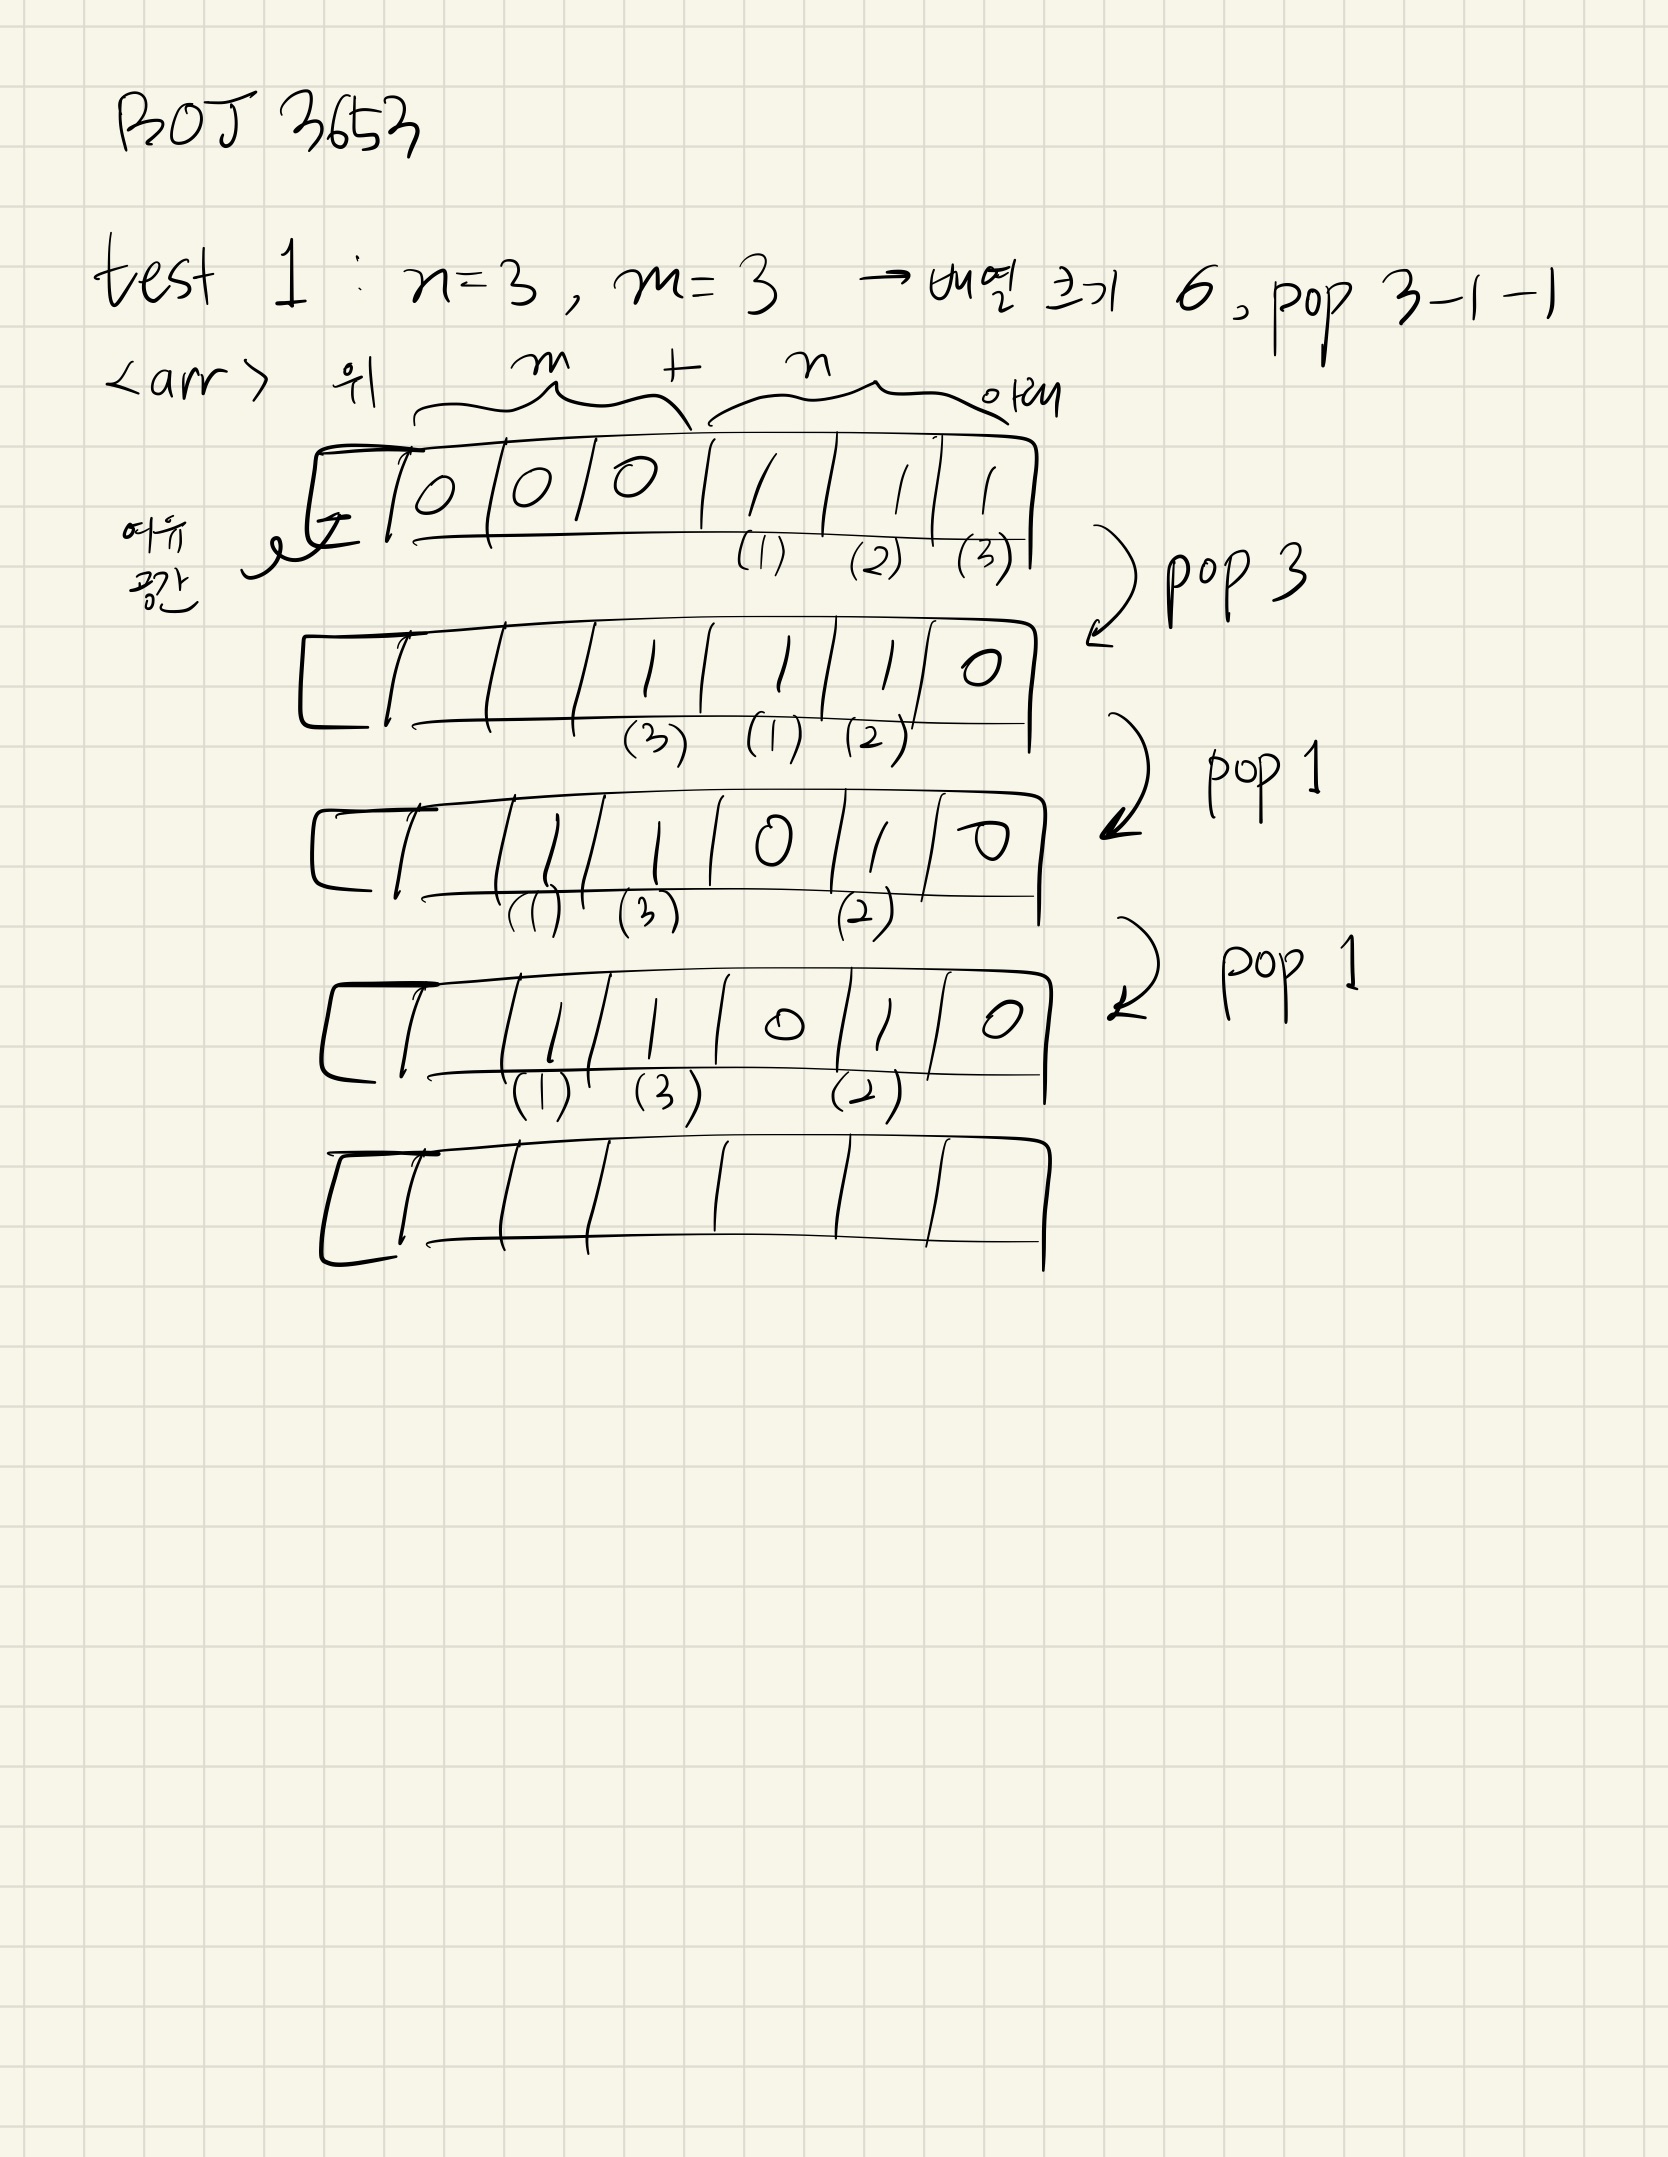 BOJ 3653
test 1 : n=3, m=3 → 배열 크기 6, pop 3-1-1
<arr> 위 m + n 아래
0 0 0 1 1 1
여유
공간
(1) (2) (3)
pop 3
1 1 1 0
(3) (1) (2)
pop 1
1 1 0 1 0
(1) (3) (2)
pop 1
1 1 0 1 0
(1) (3) (2)